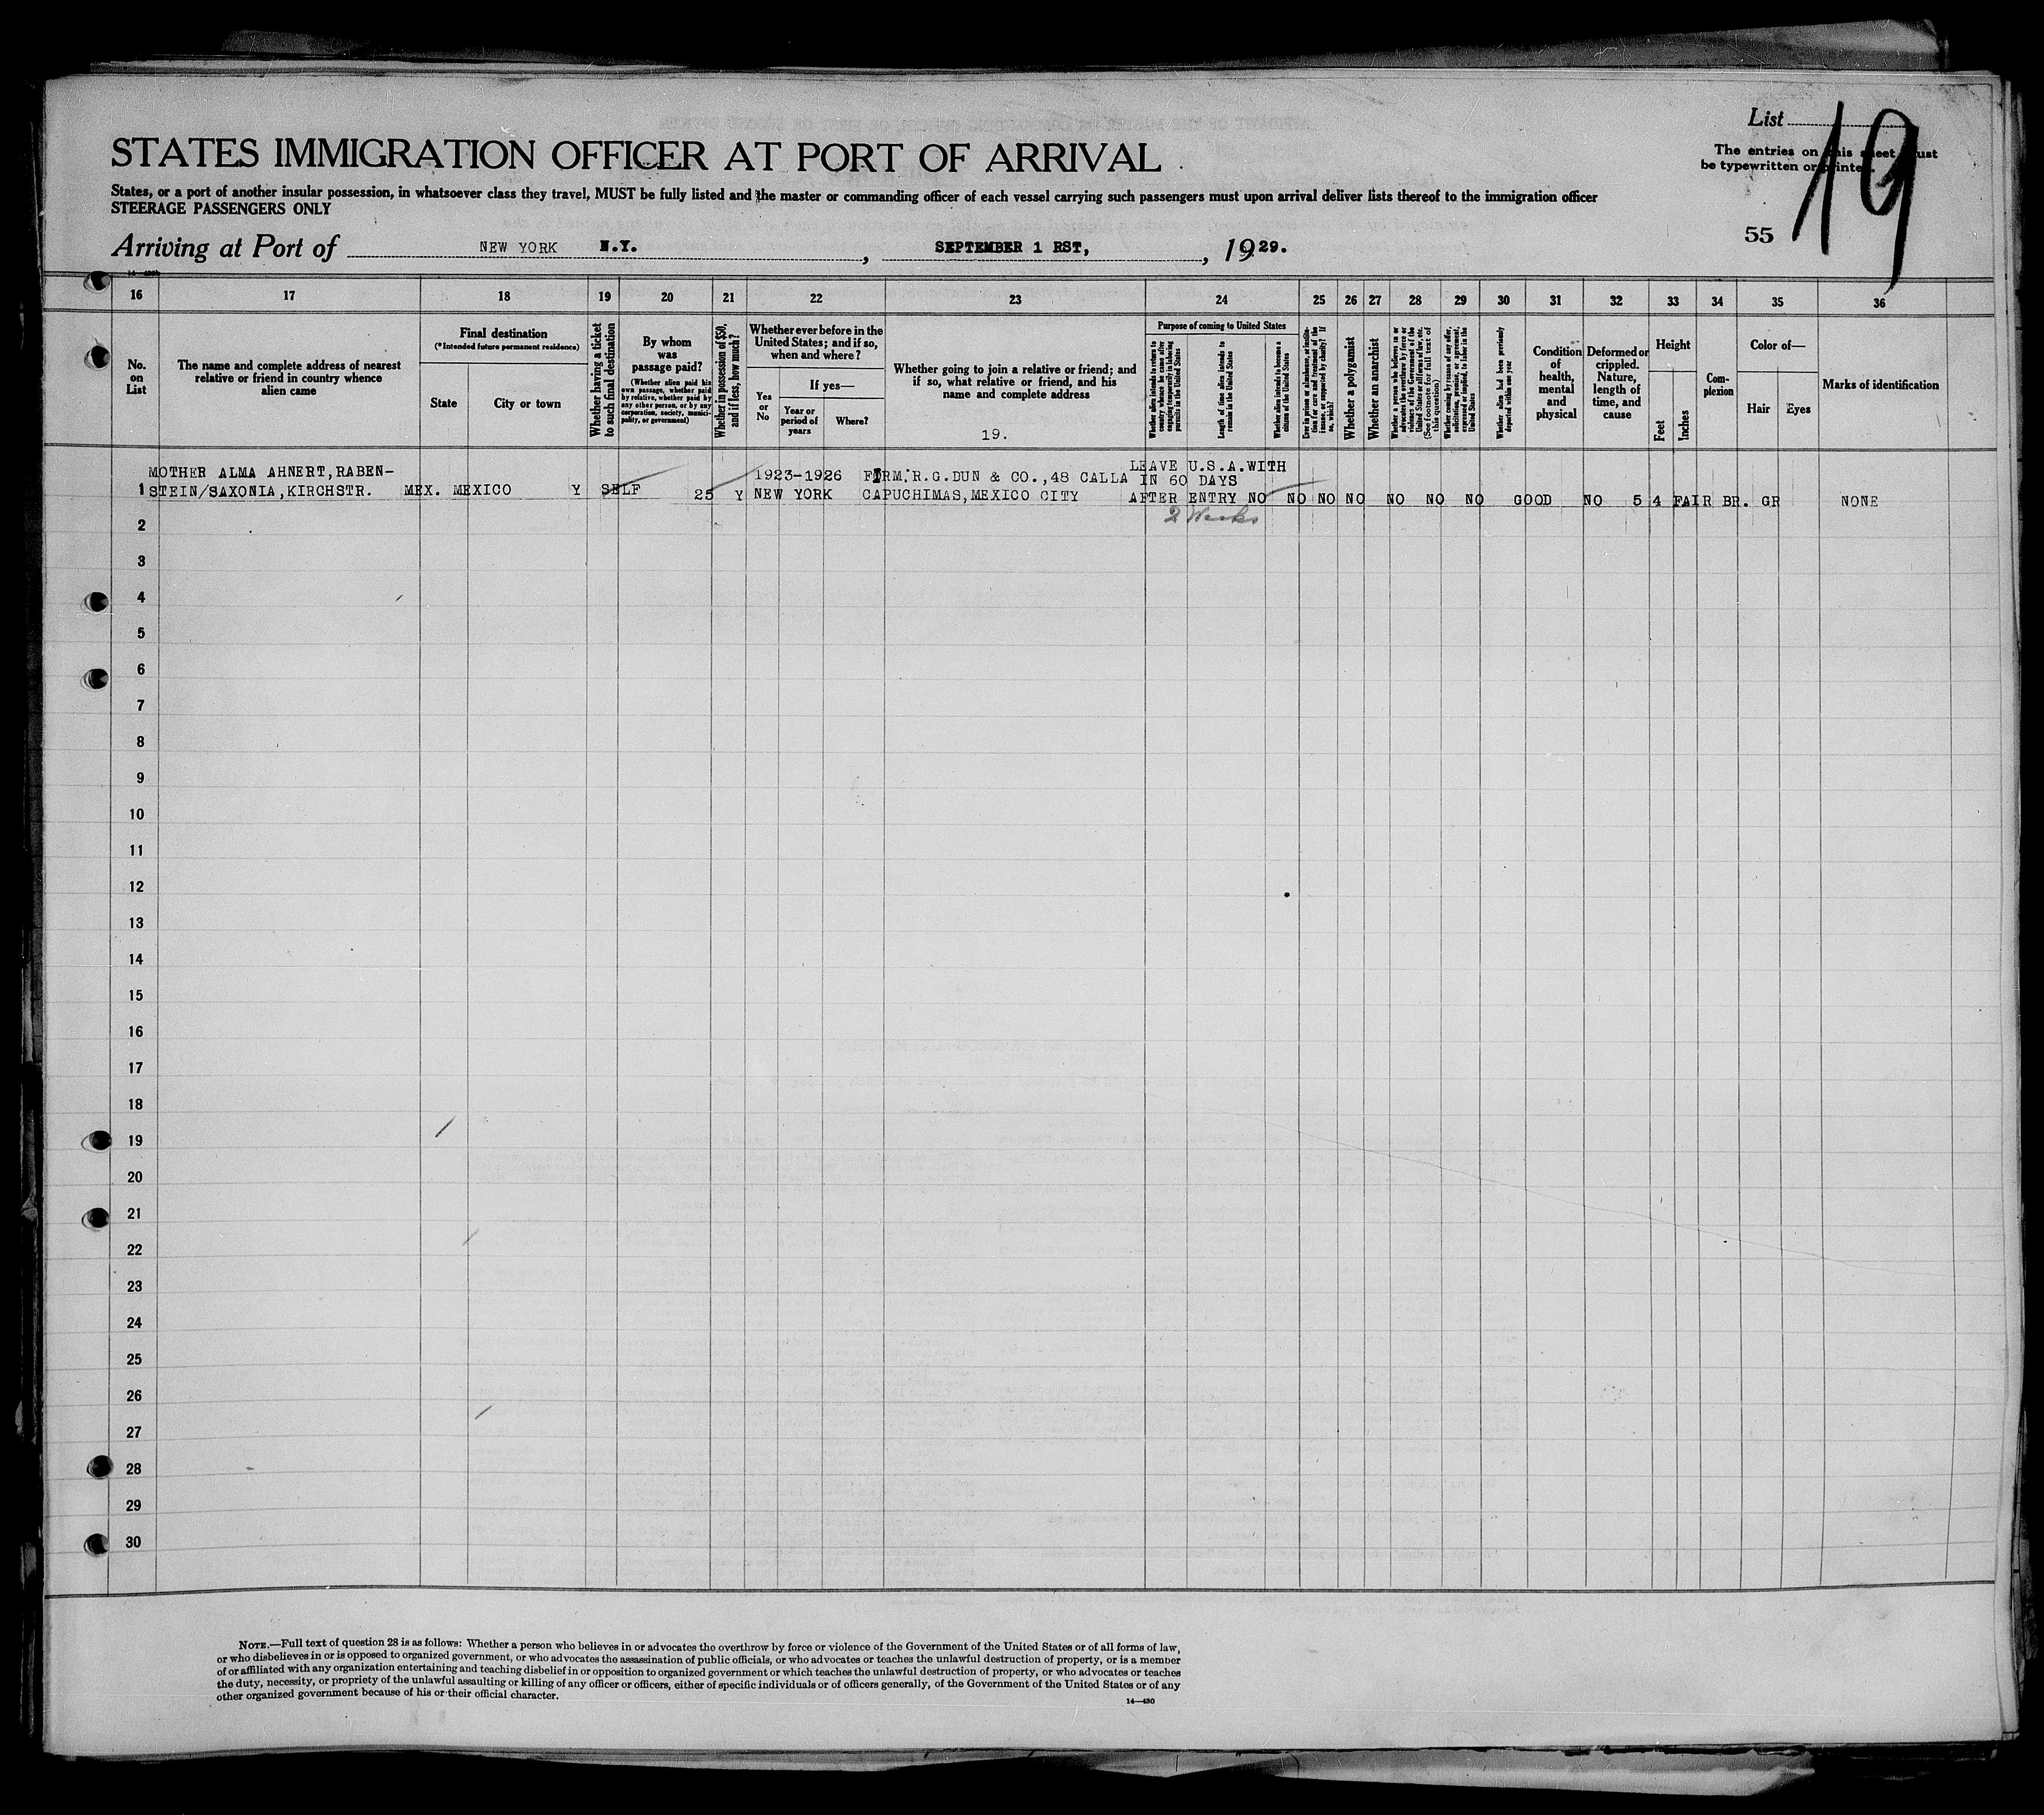 List
19
The entries on this sheet must
be typewritten or printed.
STATES IMMIGRATION OFFICER AT PORT OF ARRIVAL
States, or a port of another insular possession, in whatsoever class they travel, MUST be fully listed and the master or commanding officer of each vessel carrying such passengers must upon arrival deliver lists thereof to the immigration officer
STEERAGE PASSENGERS ONLY
55
Arriving at Port of NEW YORK N.Y. , SEPTEMBER 1 RST, , 1929.
16 17 18 19 20 21 22 23 24 25 26 27 28 29 30 31 32 33 34 35 36
No.
on
List
The name and complete address of nearest
relative or friend in country whence
alien came
Final destination
(*Intended future permanent residence)
State
City or town
Whether having a ticket
to such final destination
By whom
was
passage paid?
(Whether alien paid his
own passage, whether paid
by relative, whether paid by
any other person, or by any
corporation, society, munici-
pality, or government)
Whether in possession of $50,
and if less, how much?
Whether ever before in the
United States; and if so,
when and where?
Yes
or
No
If yes—
Year or
period of
years
Where?
Whether going to join a relative or friend; and
if so, what relative or friend, and his
name and complete address
19.
Purpose of coming to United States
Whether alien intends to return to
country whence he came after
engaging temporarily in laboring
pursuits in the United States
Length of time alien intends to
remain in the United States
Whether alien intends to become a
citizen of the United States
Ever in prison or almshouse, or institu-
tion for care and treatment of the
insane, or supported by charity? If
so, which?
Whether a polygamist
Whether an anarchist
Whether a person who believes in or
advocates the overthrow by force or
violence of the Government of the
United States or all forms of law, etc.
(See footnote for full text of
this question)
Whether coming by reason of any offer,
solicitation, promise, or agreement,
expressed or implied, to labor in the
United States
Whether alien had been previously
deported within one year
Condition
of
health,
mental
and
physical
Deformed or
crippled.
Nature,
length of
time, and
cause
Height
Feet
Inches
Com-
plexion
Color of—
Hair
Eyes
Marks of identification
MOTHER ALMA AHNERT,RABEN- 1923-1926 FIRM:R.G.DUN & CO.,48 CALLA LEAVE U.S.A.WITH
IN 60 DAYS
1 STEIN/SAXONIA,KIRCHSTR. MEX. MEXICO Y SELF 25 Y NEW YORK CAPUCHIMAS,MEXICO CITY AFTER ENTRY NO NO NO NO NO NO NO GOOD NO 5 4 FAIR BR. GR NONE
2 2 Weeks
3
4
5
6
7
8
9
10
11
12
13
14
15
16
17
18
19
20
21
22
23
24
25
26
27
28
29
30
NOTE.—Full text of question 28 is as follows: Whether a person who believes in or advocates the overthrow by force or violence of the Government of the United States or of all forms of law,
or who disbelieves in or is opposed to organized government, or who advocates the assassination of public officials, or who advocates or teaches the unlawful destruction of property, or is a member
of or affiliated with any organization entertaining and teaching disbelief in or opposition to organized government or which teaches the unlawful destruction of property, or who advocates or teaches
the duty, necessity, or propriety of the unlawful assaulting or killing of any officer or officers, either of specific individuals or of officers generally, of the Government of the United States or of any
other organized government because of his or their official character.
14—430